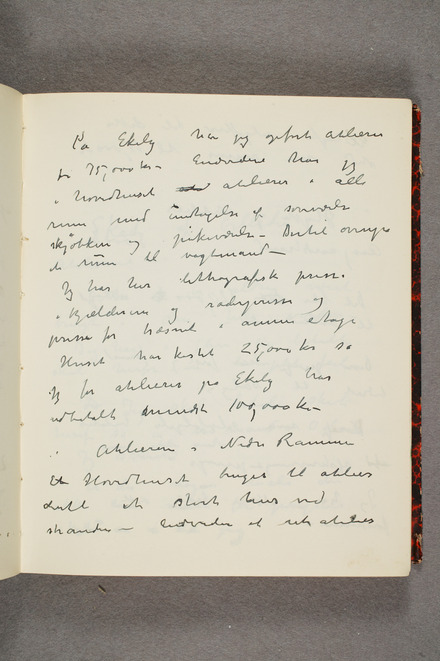 På Ekely har jeg opført atelierer
for 75,000 kr – Endvidere har jeg
i hovedhuset atelierer i alle
rum med undtagelse af soveværelse
skjøkken og pikeværelse – Dertil
et rum til vagtmand –
Jeg har her lithografisk presse
i kjælderen og raderpresse og
presse for træsnit i anden etage
Huset har kostet 25,000 kr så
jeg for atelierer på Ekely har
udbetalt mindst 100,000 kr –
Atelierer i Nedre Ramme
Hovedhuset bruges til atelier
dertil et stort hus ved
stranden – Endvidere et